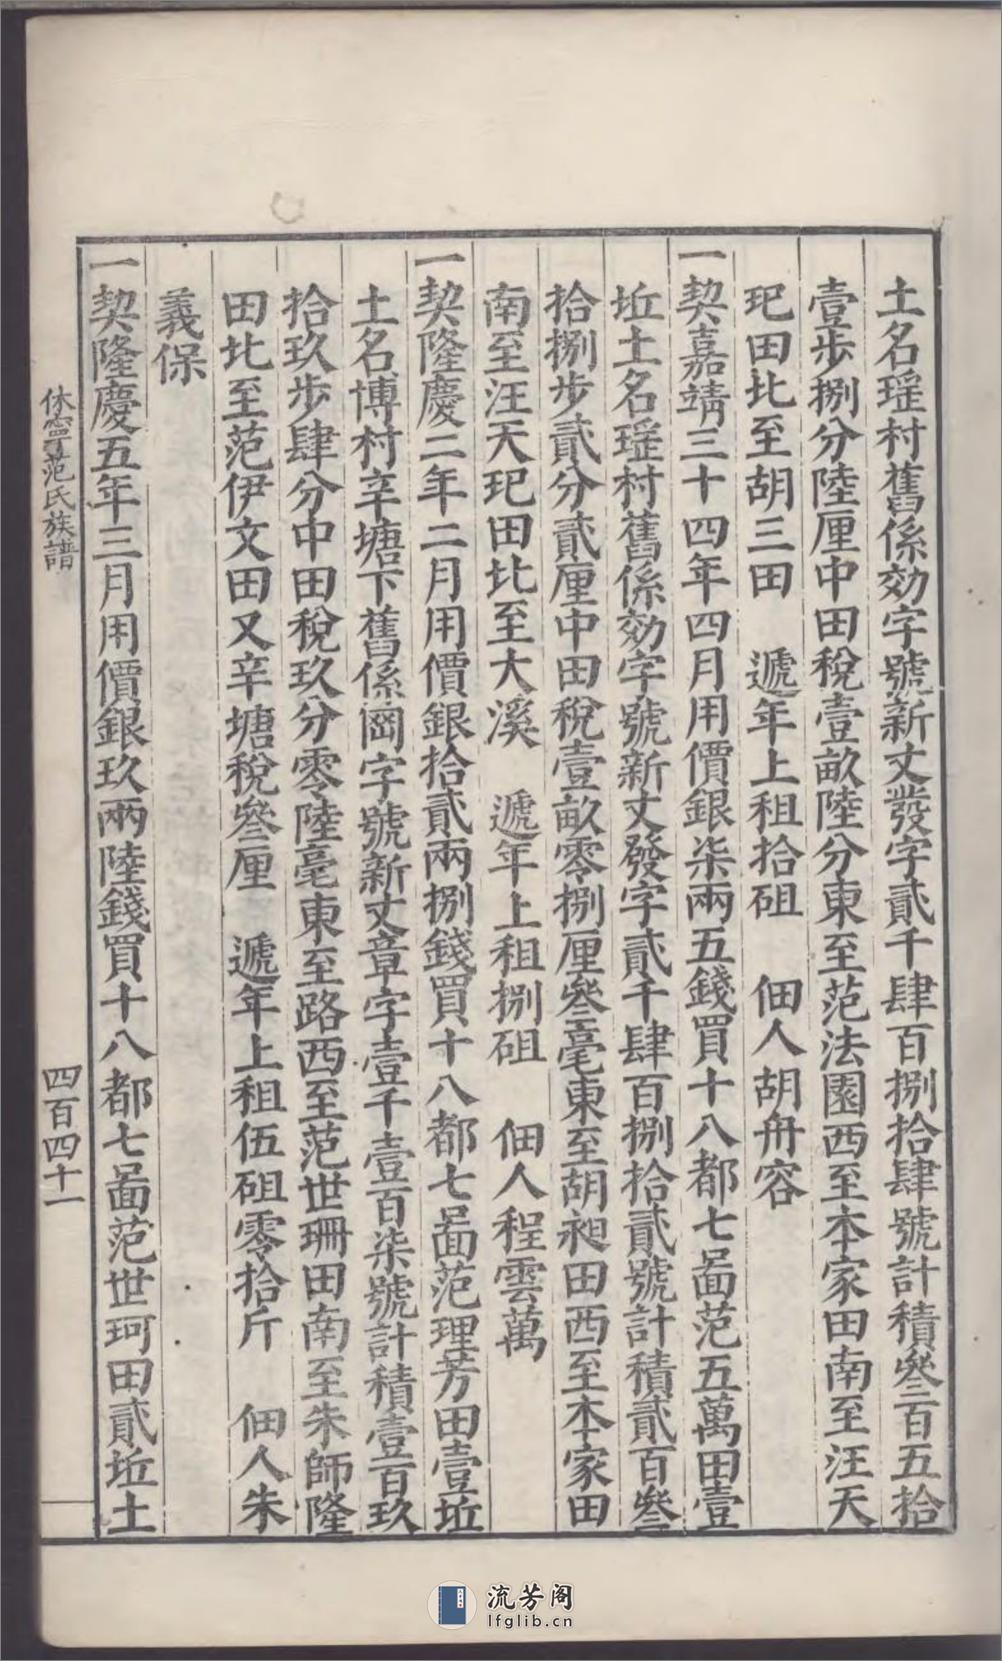 土名瑶村舊係効字號新丈發字貳千肆百捌拾肆號計積叄百五拾
壹步捌分陸厘中田稅壹畝陸分東至范法園西至本家田南至汪天
玘田北至胡三田　遞年上租拾砠　佃人胡舟容
一契嘉靖三十四年四月用價銀柒兩五錢買十八都七啚范五萬田壹
坵土名瑶村舊係効字號新丈發字貳千肆百捌拾貳號計積貳百叄
拾捌步貳分貳厘中田稅壹畝零捌厘叄毫東至胡昶田西至本家田
南至汪天玘田北至大溪　遞年上租捌砠　佃人程雲萬
一契隆慶二年二月用價銀拾貳兩捌錢買十八都七啚范理芳田壹坵
土名博村辛塘下舊係岡字號新丈章字壹千壹百柒號計積壹百玖
拾玖步肆分中田稅玖分零陸毫東至路西至范世珊田南至朱師隆
田北至范伊文田又辛塘稅叄厘　遞年上租伍砠零拾斤　佃人朱
義保
一契隆慶五年三月用價銀玖兩陸錢買十八都七啚范世珂田貳坵土
休寧范氏族譜
四百四十一
流芳阁
lfglib.cn